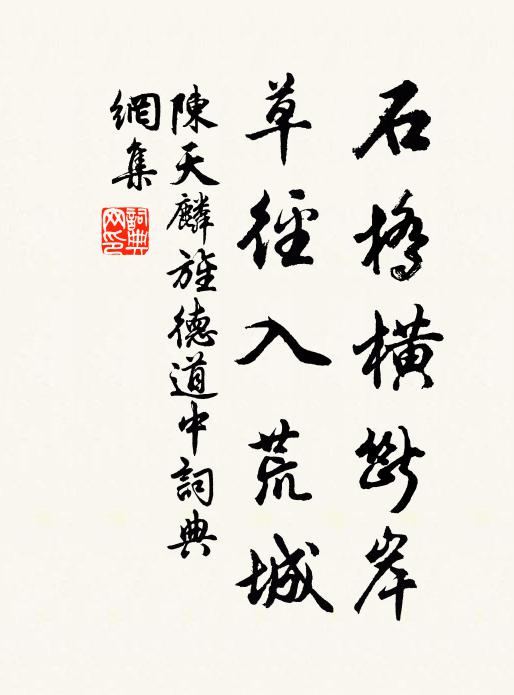 石橋橫斷岸
草徑入荒城
陳天麟旌德道中詞典
網集
詞典網印